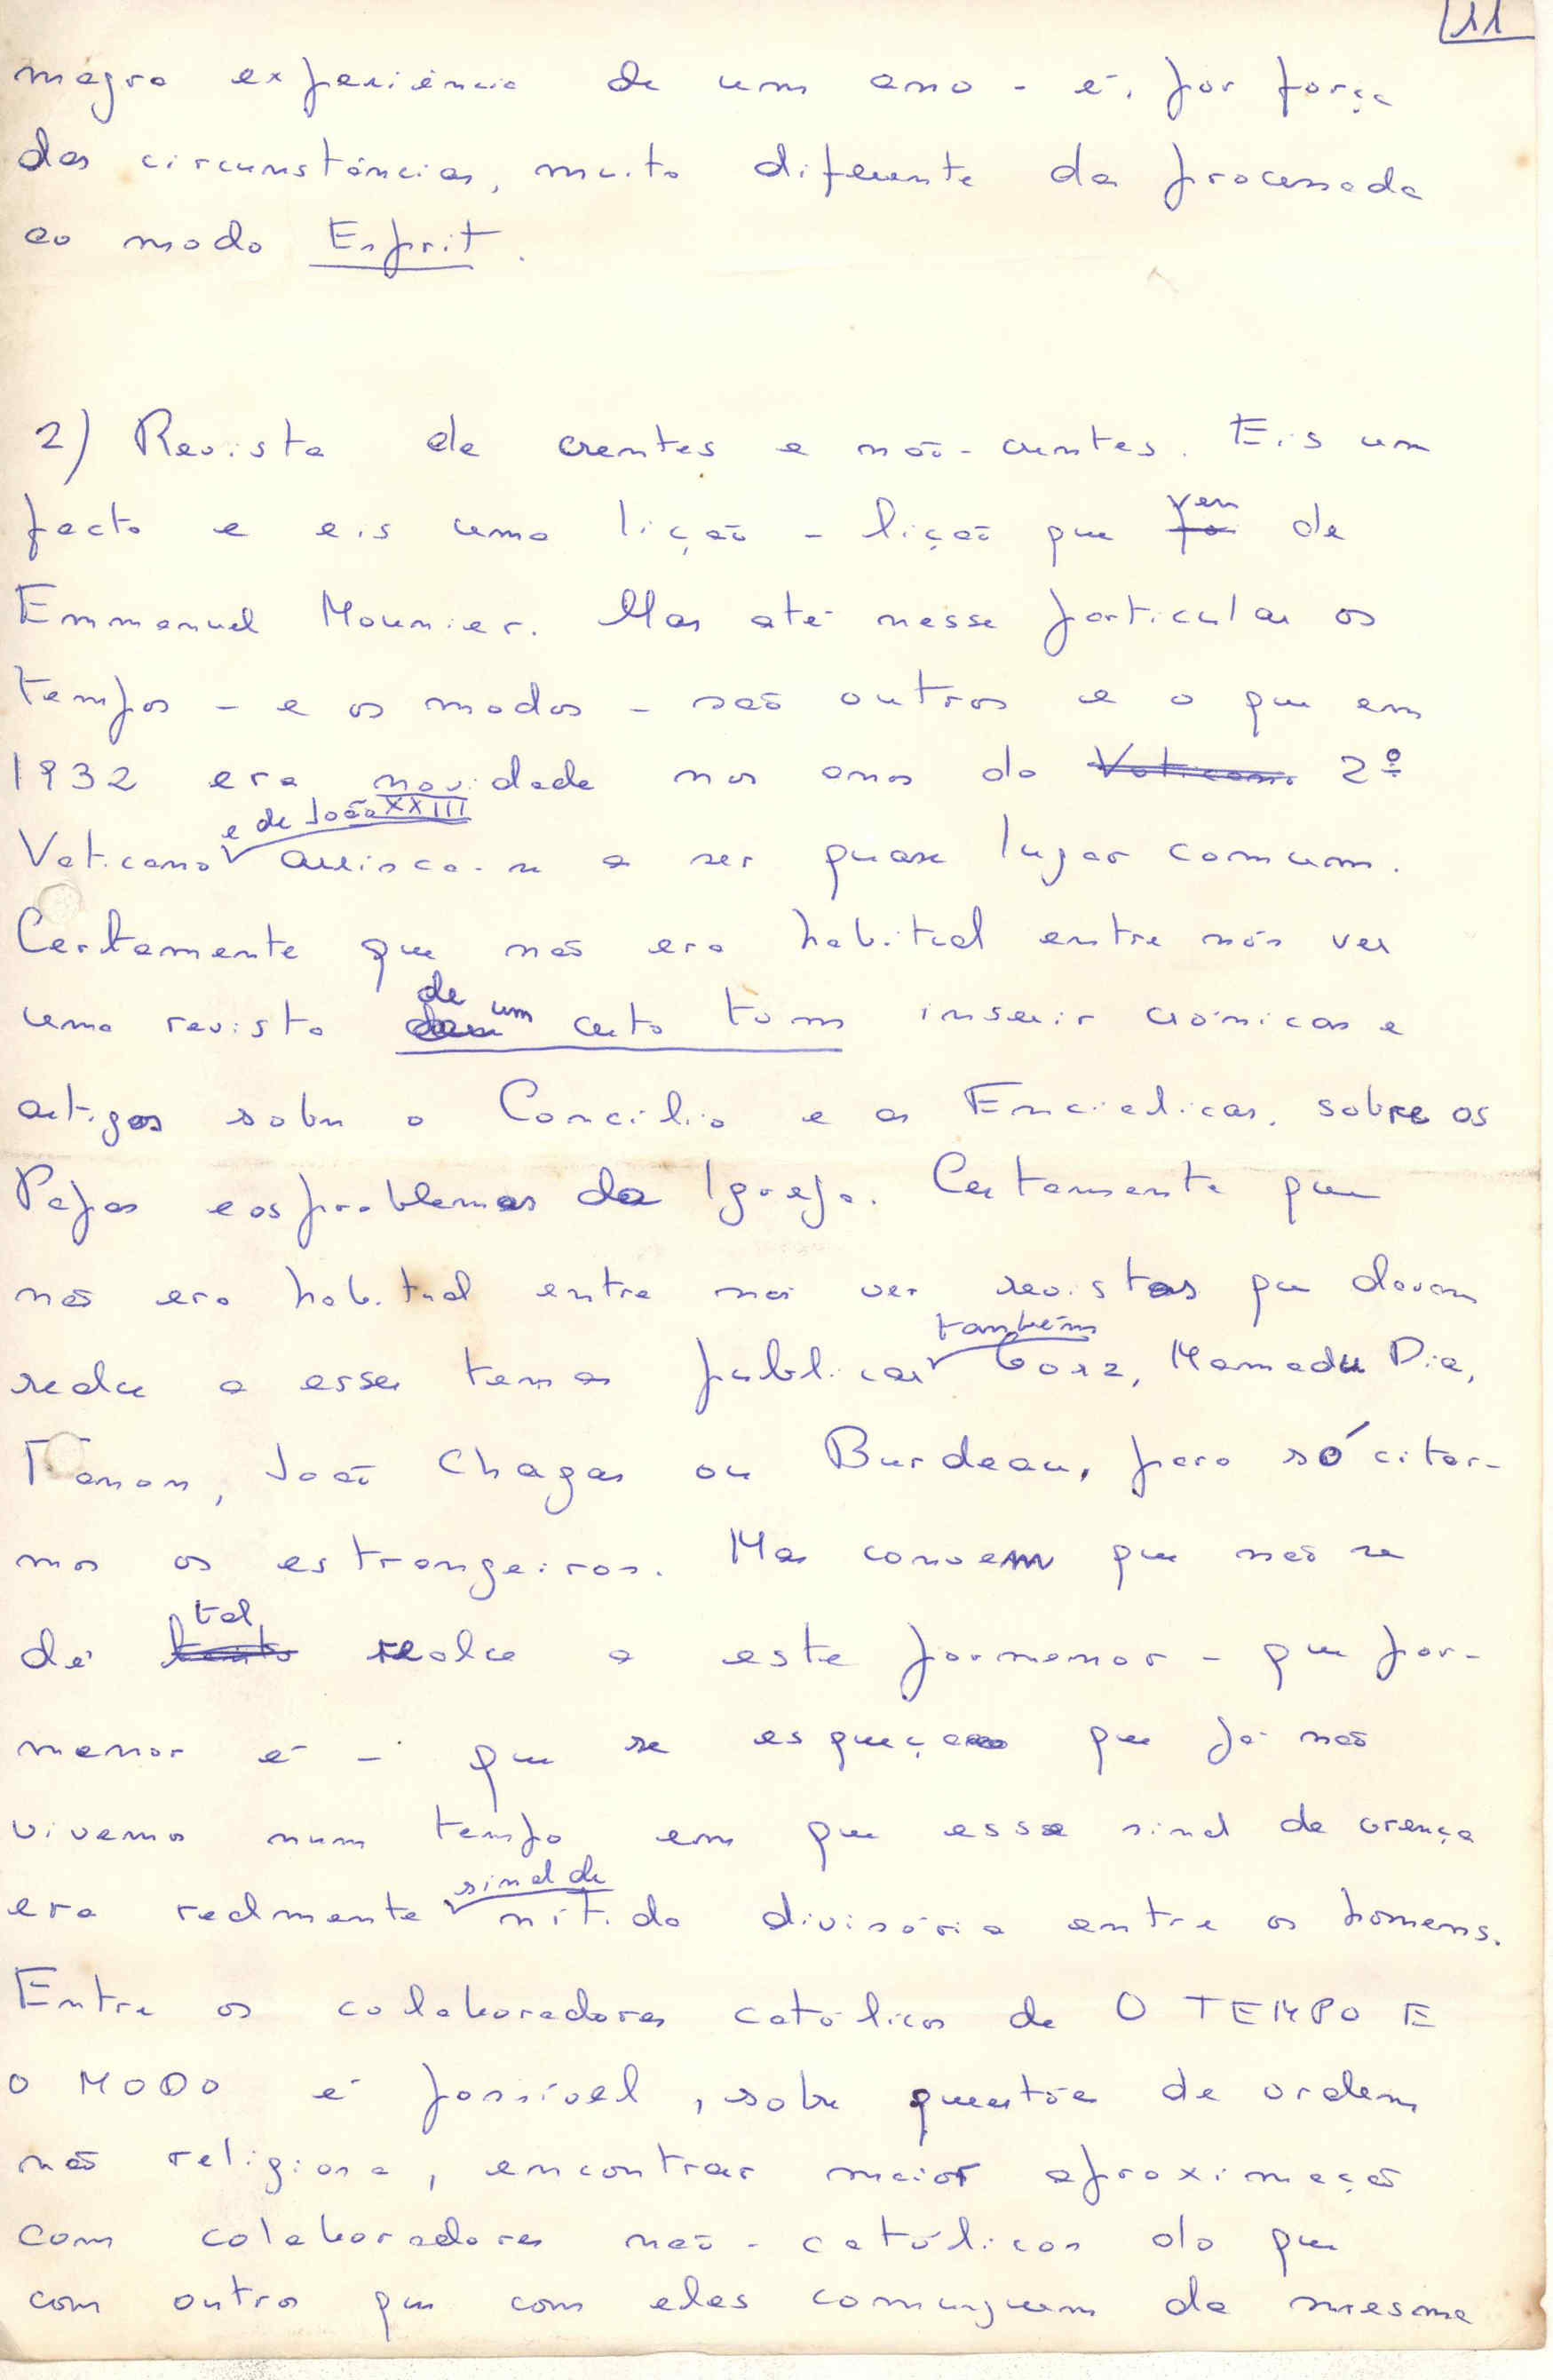 11
magra experiência de um ano - é, por força
das circunstâncias, muito diferente da processada
ao modo Esprit.
2) Revista de crentes e não-crentes. Eis um
facto e eis uma lição - lição que vem de
Emmanuel Mounier. Mas até nesse particular os
tempos - e os modos - são outros e o que em
1932 era novidade nos anos do Vaticano 2º
Vaticano e de João XXIII arrisca-se a ser quase lugar comum.
Certamente que não era habitual entre nós ver
uma revista de um certo tom inserir crónicas e
artigos sobre o Concílio e as Encíclicas, sobre os
Papas e os problemas da Igreja. Certamente que
não era habitual entre nós ver revistas que davam
realce a esses temas publicar também Gorz, Mamadu Dia,
Fanon, João Chagas ou Burdeau, para só citar-
mos os estrangeiros. Mas convem que não se
dê tal realce a este pormenor - que por-
menor é - que se esqueça que já não
vivemos num tempo em que esse sinal de crença
era realmente sinal de nítida divisória entre os homens.
Entre os colaboradores católicos de O TEMPO E
O MODO é possível, sobre questões de ordem
não religiosa, encontrar maior aproximação
com colaboradores não-católicos do que
com outros que com eles comunguem da mesma